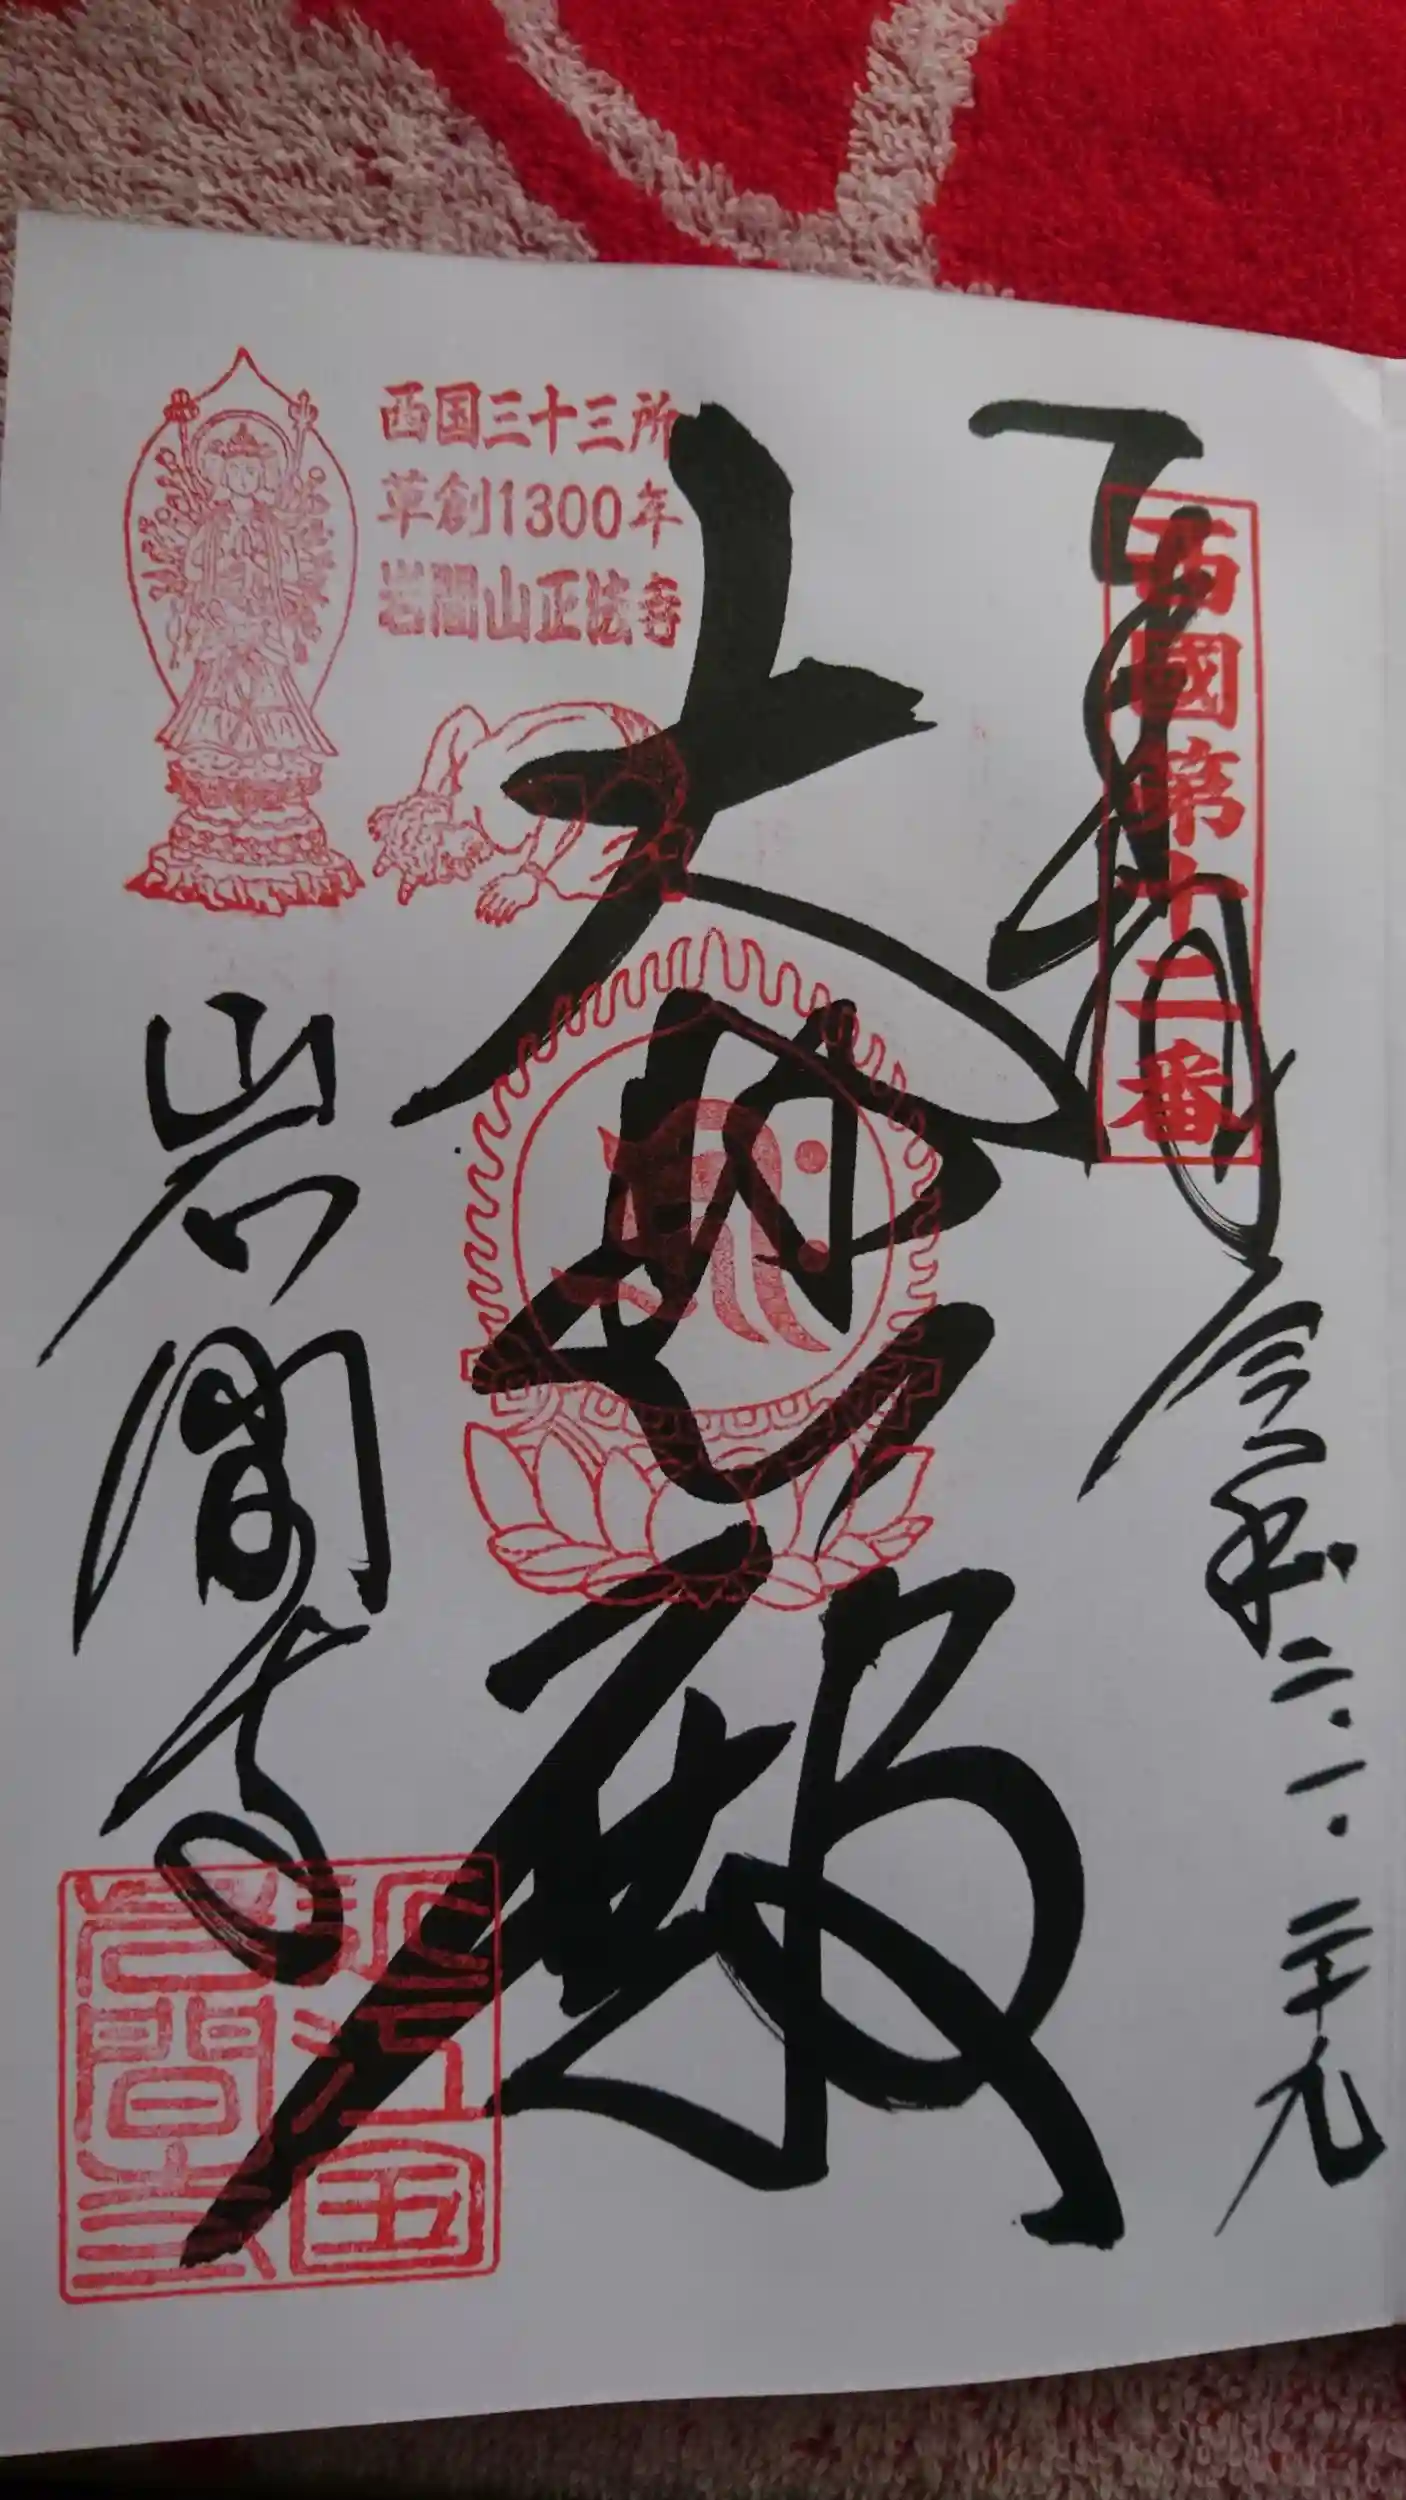 西國第十二番
奉拝
令和二・一・二十九
大悲殿
西国三十三所
草創1300年
岩間山正法寺
岩間寺